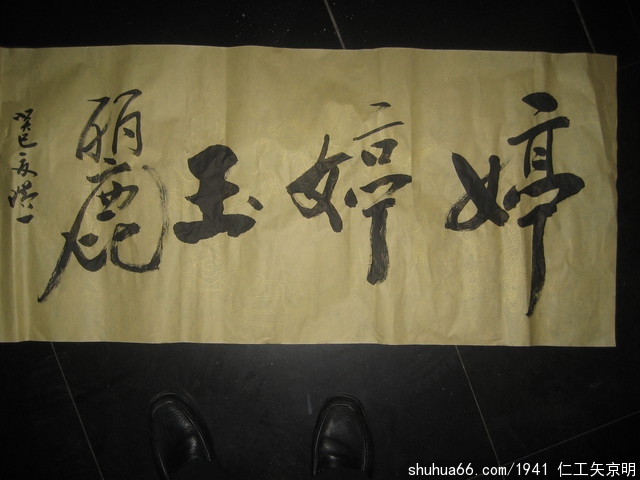 婷婷玉麗
癸巳夏
shuhua66.com/1941 仁工矢京明